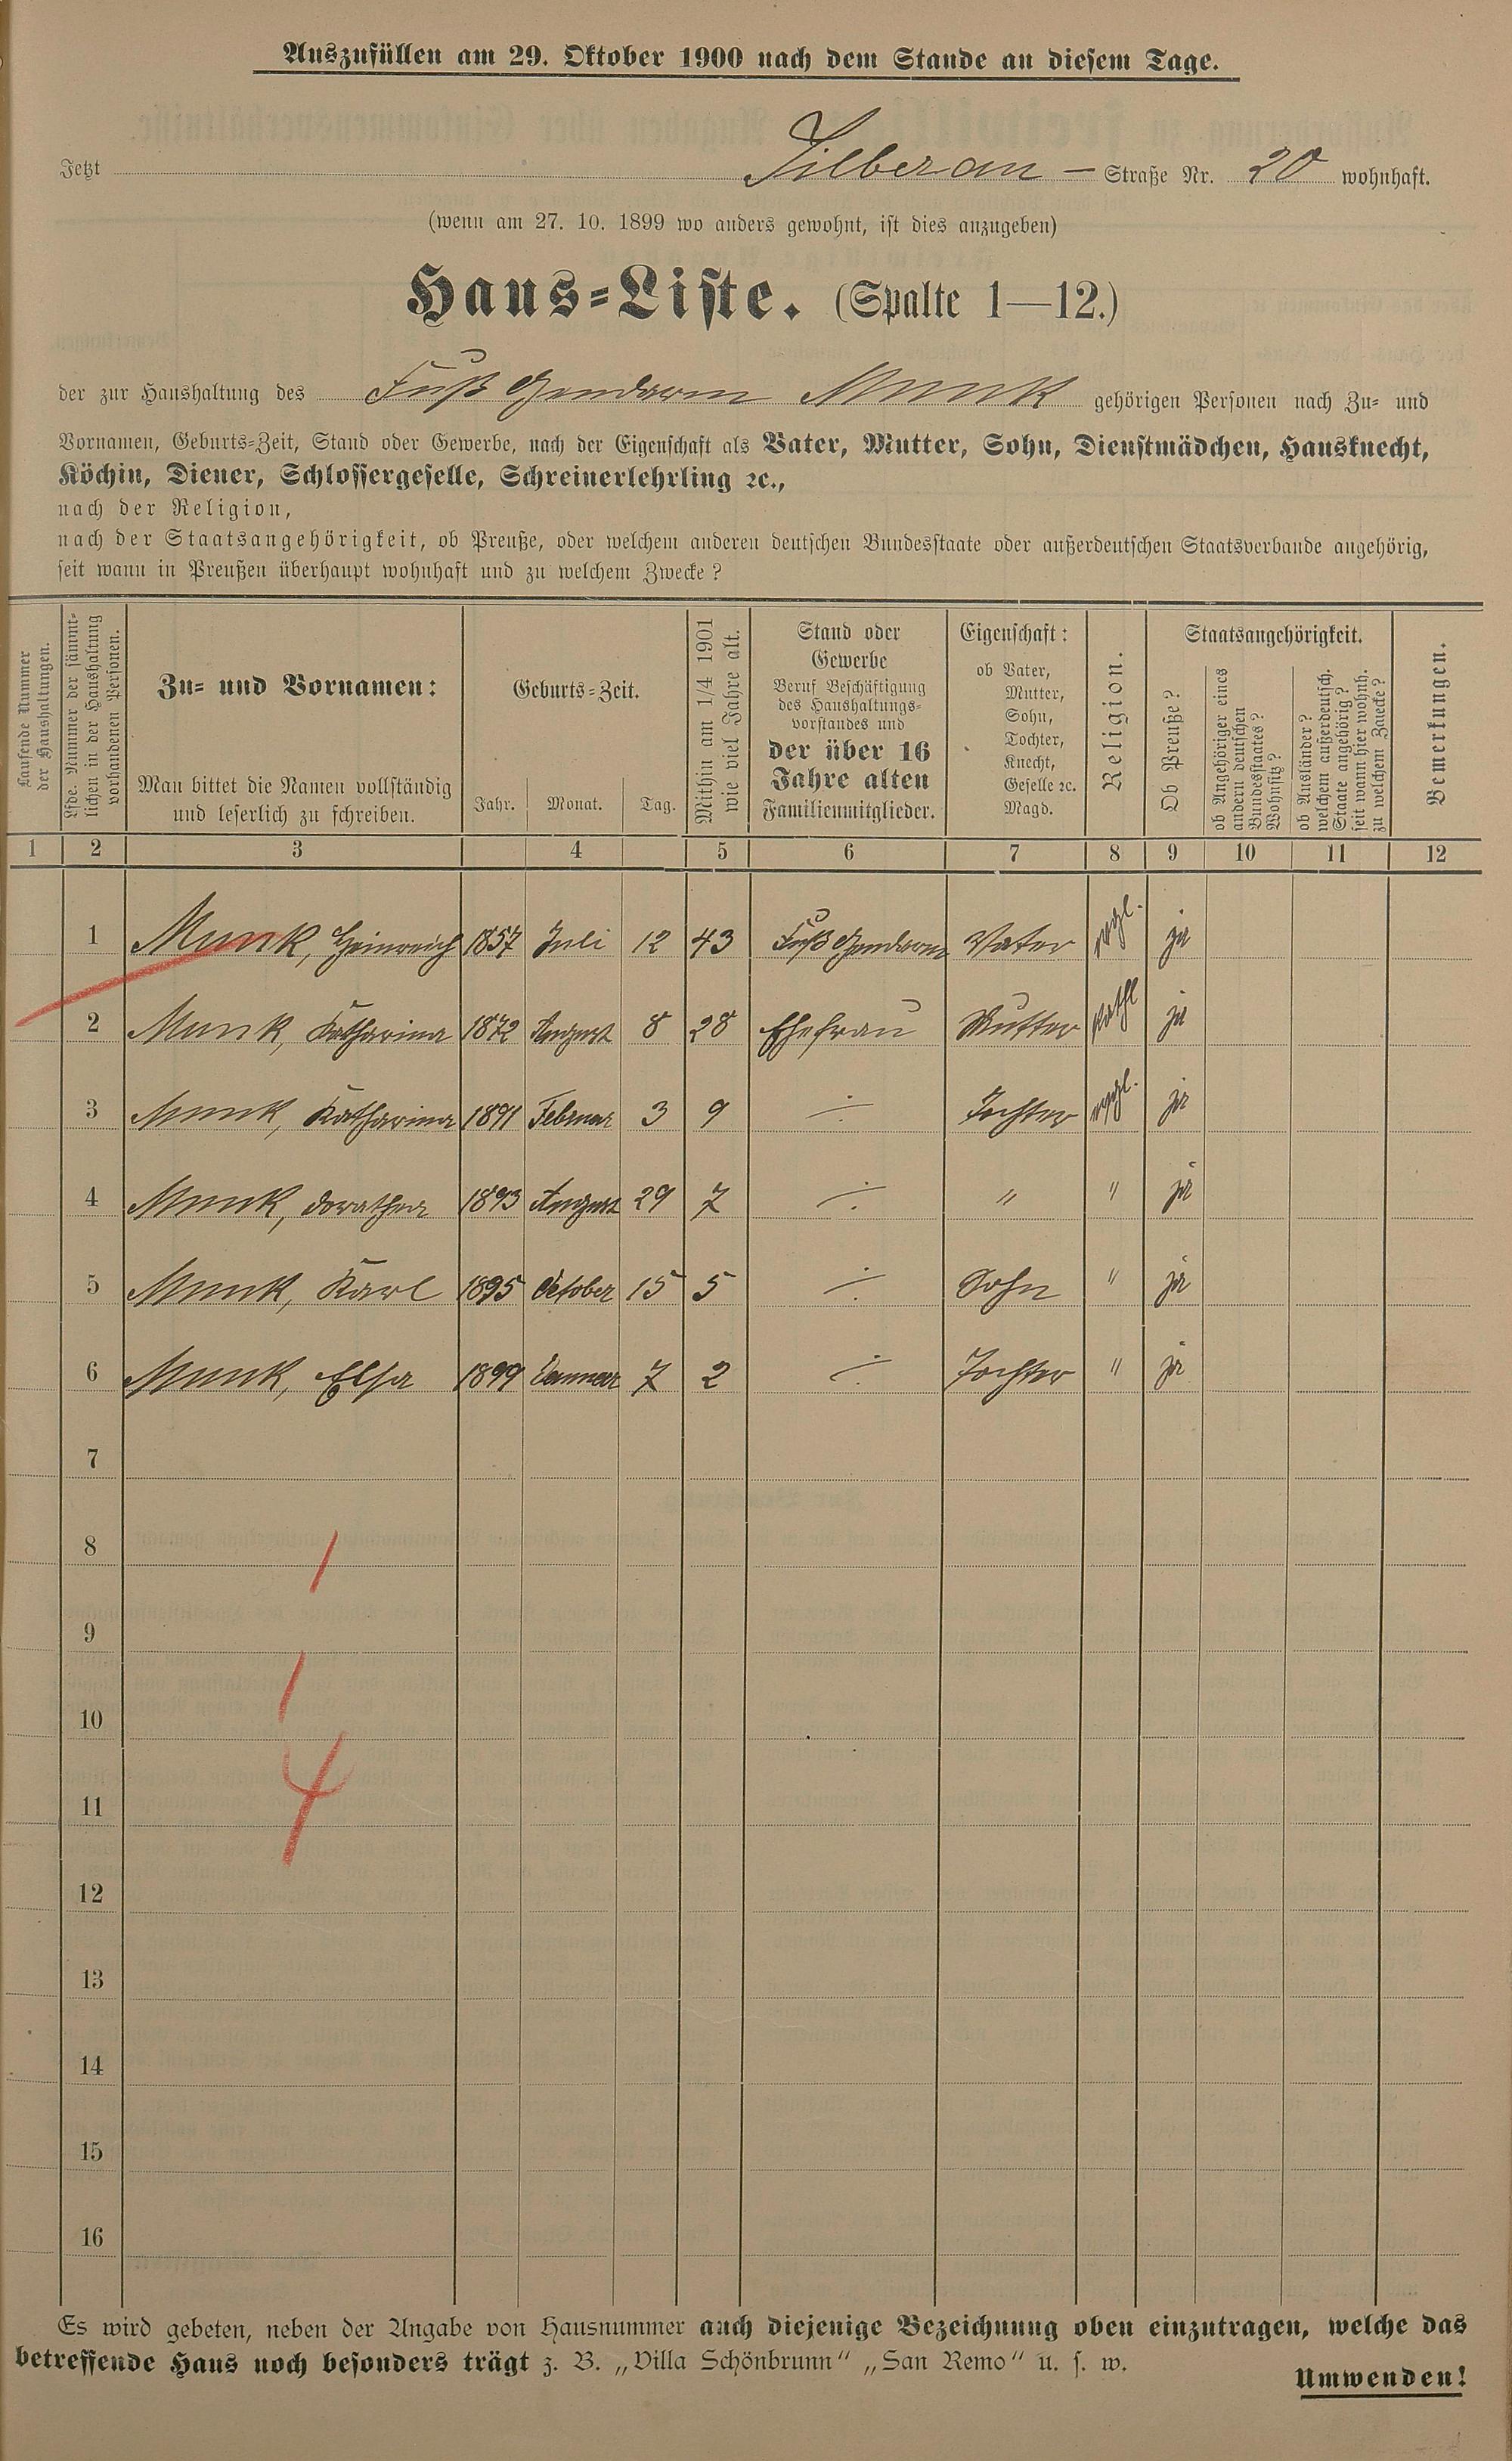 Auszufüllen am 29. Oktober 1900 nach dem Stande an diesem Tage.
Jetzt Silberau – Straße Nr. 20 wohnhaft.
(wenn am 27. 10. 1899 wo anders gewohnt, ist dies anzugeben)
Haus=Liste. (Spalte 1—12.)
der zur Haushaltung des Fuß Gendarm Munk gehörigen Personen nach Zu= und
Vornamen, Geburts=Zeit, Stand oder Gewerbe, nach der Eigenschaft als Vater, Mutter, Sohn, Dienstmädchen, Hausknecht,
Köchin, Diener, Schlossergeselle, Schreinerlehrling ꝛc.,
nach der Religion,
nach der Staatsangehörigkeit, ob Preuße, oder welchem anderen deutschen Bundesstaate oder außerdeutschen Staatsverbande angehörig,
seit wann in Preußen überhaupt wohnhaft und zu welchem Zwecke?
Laufende Nummer
der Haushaltungen.
Lfde. Nummer der sämmt-
lichen in der Haushaltung
vorhandenen Personen.
Zu= und Vornamen:
Man bittet die Namen vollständig
und leserlich zu schreiben.
Geburts=Zeit.
Jahr. Monat. Tag.
Mithin am 1/4 1901
wie viel Jahre alt.
Stand oder
Gewerbe
Beruf Beschäftigung
des Haushaltungs=
vorstandes und
der über 16
Jahre alten
Familienmitglieder.
Eigenschaft:
ob Vater,
Mutter,
Sohn,
Tochter,
Knecht,
Geselle ꝛc.
Magd.
Religion.
Staatsangehörigkeit.
Ob Preuße?
ob Angehöriger eines
andern deutschen
Bundesstaates?
Wohnsitz?
ob Ausländer?
welchem außerdeutsch.
Staate angehörig?
seit wann hier wohnh.
zu welchem Zwecke?
Bemerkungen.
1 2 3 4 5 6 7 8 9 10 11 12
1 Munk, Heinreich 1857 Juli 12 43 Fuß Gendarm Vater evgl. ja
2 Munk, Katharina 1872 August 8 28 Ehefrau Mutter kathl ja
3 Munk, Katharina 1891 Februar 3 9 ÷ Tochter evgl. ja
4 Munk, Dorathea 1893 August 29 7 ÷ " " ja
5 Munk, Karl 1895 October 15 5 ÷ Sohn " ja
6 Munk, Elsa 1899 Januar 7 2 ÷ Tochter " ja
7
8
1
9
1
10
4
11
12
13
14
15
16
Es wird gebeten, neben der Angabe von Hausnummer auch diejenige Bezeichnung oben einzutragen, welche das
betreffende Haus noch besonders trägt z. B. „Villa Schönbrunn" „San Remo" u. s. w.
Umwenden!